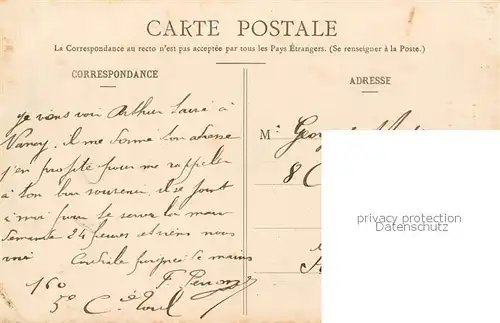 CARTE POSTALE
La Correspondance au recto n'est pas acceptée par tous les Pays Étrangers. (Se renseigner à la Poste.)
CORRESPONDANCE
ADRESSE
Je viens voir Arthur à
Nancy, il me donne ton adresse
j'en profite pour me rappeler
à ton bon souvenir. il se joint
à moi pour te serrer la main
demande 24 heures et viens nous
voir Cordiale poignée de mains
160
5e Cie Toul
M: Georges
8
privacy protection